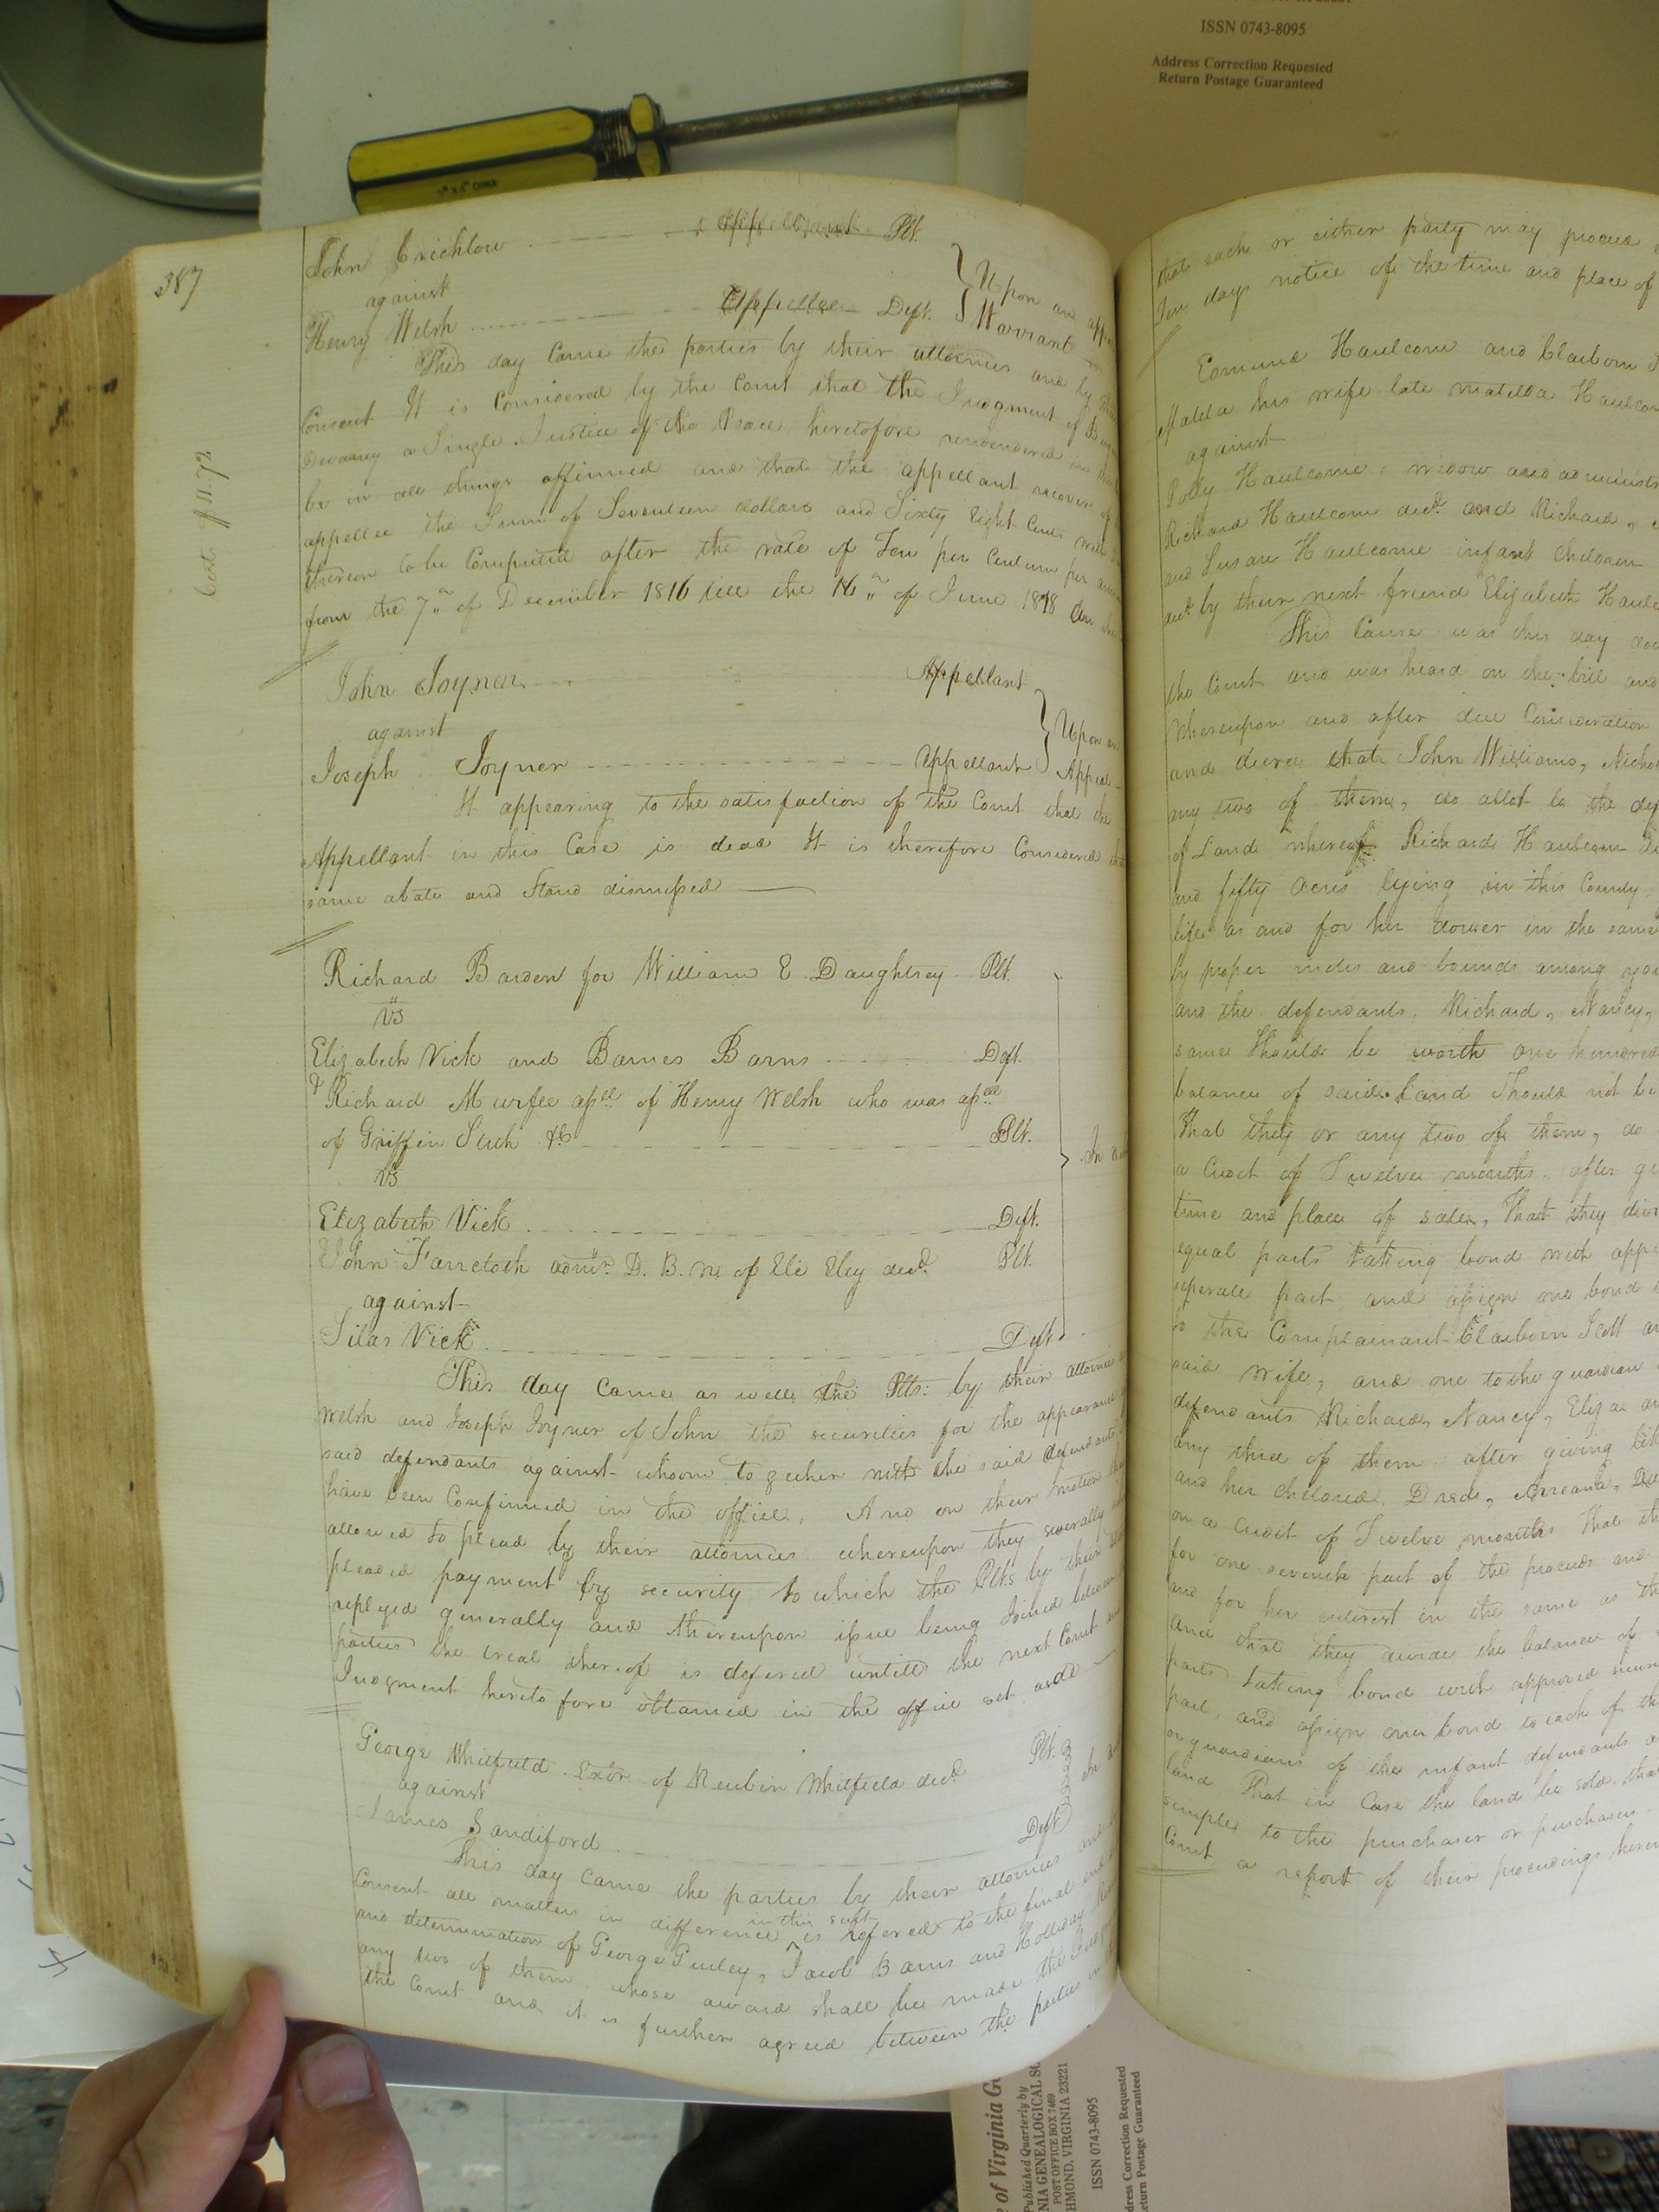 ISSN 0743-8095
Address Correction Requested
Return Postage Guaranteed
CHINA
387
John Crichlow Appellant Plt.
against
Henry Welsh Appellee Deft.
Upon an
Warrant
This day Came the parties by their attornies and by
Consent It is Considered by the Court that the Judgment of
Devany a Single Justice of the Peace heretofore rendered in
be in all things affirmed and that the appellant recover of
appellee the Sum of Seventeen dollars and Sixty Eight Cents with
thereon to be Computed after the rate of Ten per Centum per
from the 7th of December 1816 till the 16th of June 1818
Cost $11.72
John Joyner Appellant
against
Joseph Joyner Appellant
Upon an
Appeal
It appearing to the satisfaction of the Court that the
Appellant in this Case is dead It is therefore Considered
same abate and Stand dismissed
Richard Barden for William E. Daughtrey Plt.
vs
Elizabeth Vick and Barnes Barns Deft.
Richard Murfee apee of Henry Welsh who was apee
of Griffin &c Plt.
vs
Elizabeth Vick Deft.
John admr. D. B. N. of Eli Eley decd. Plt.
against
Silas Vick Deft.
This day Came as well the Plts: by their attornies
Welsh and Joseph Joyner of John the securities for the appearance
said defendants against whom together with the said defendants
have been Confirmed in the office. And on their motion
allowed to plead by their attornies whereupon they severally
pleaded payment by security to which the Plts by their
replyed generally and thereupon issue being Joined between
parties the trial thereof is defered untill the next Court
Judgment heretofore obtained in the office set aside
George Whitfield Exor. of Reubin Whitfield decd. Plt.
against
James Sandiford Deft.
This day came the parties by their attornies and
Consent all matters in difference in this suit is refered to the final
and determination of George Gurley, Jacob Barns and Holliday
any two of them whose award shall be made the
the Court and it is further agreed between the parties
that each or either party may proceed
Ten days notice of the time and place of
Edmund Haulcome and Claiborn
Matilda his wife late Matilda
against
Polly Haulcome, widow and
Richard Haulcom decd. and Richard,
and Susan Haulcome infant children
decd. by their next friend Elizabeth
This Cause was this day
the Court and was heard on the bill and
Whereupon and after due Consideration
and decree that John Williams,
any two of them, do allot to the
of Land whereof Richard Haulcom
and fifty acres lying in this County.
life as and for her dower in the same
by proper metes and bounds among
and the defendants, Richard, Nancy,
same Should be worth one hundred
balance of said Land Should not be
That they or any two of them, do
a Credit of Twelve months, after
time and place of sale, That they
equal parts taking bond with
seperate part and assign one bond
to the Complainant Claiborn Scott
said wife, and one to the guardian
defendants Richard, Nancy, Eliza
any three of them after giving
and her Children, Dred,
on a Credit of Twelve months That
for one seventh part of the proceeds and
and for her interest in the same as
and that they divide the balance of
parts taking bond with approved
part, and assign one bond to each of the
or guardians of the infant defendants
land That in Case the land be sold, that
simple to the purchaser or purchasers.
Court a report of their proceedings herein
of Virginia
Published Quarterly by
NIA GENEALOGICAL
POST OFFICE BOX 7469
HMOND, VIRGINIA 23221
ISSN 0743-8095
dress Correction Requested
eturn Postage Guaranteed